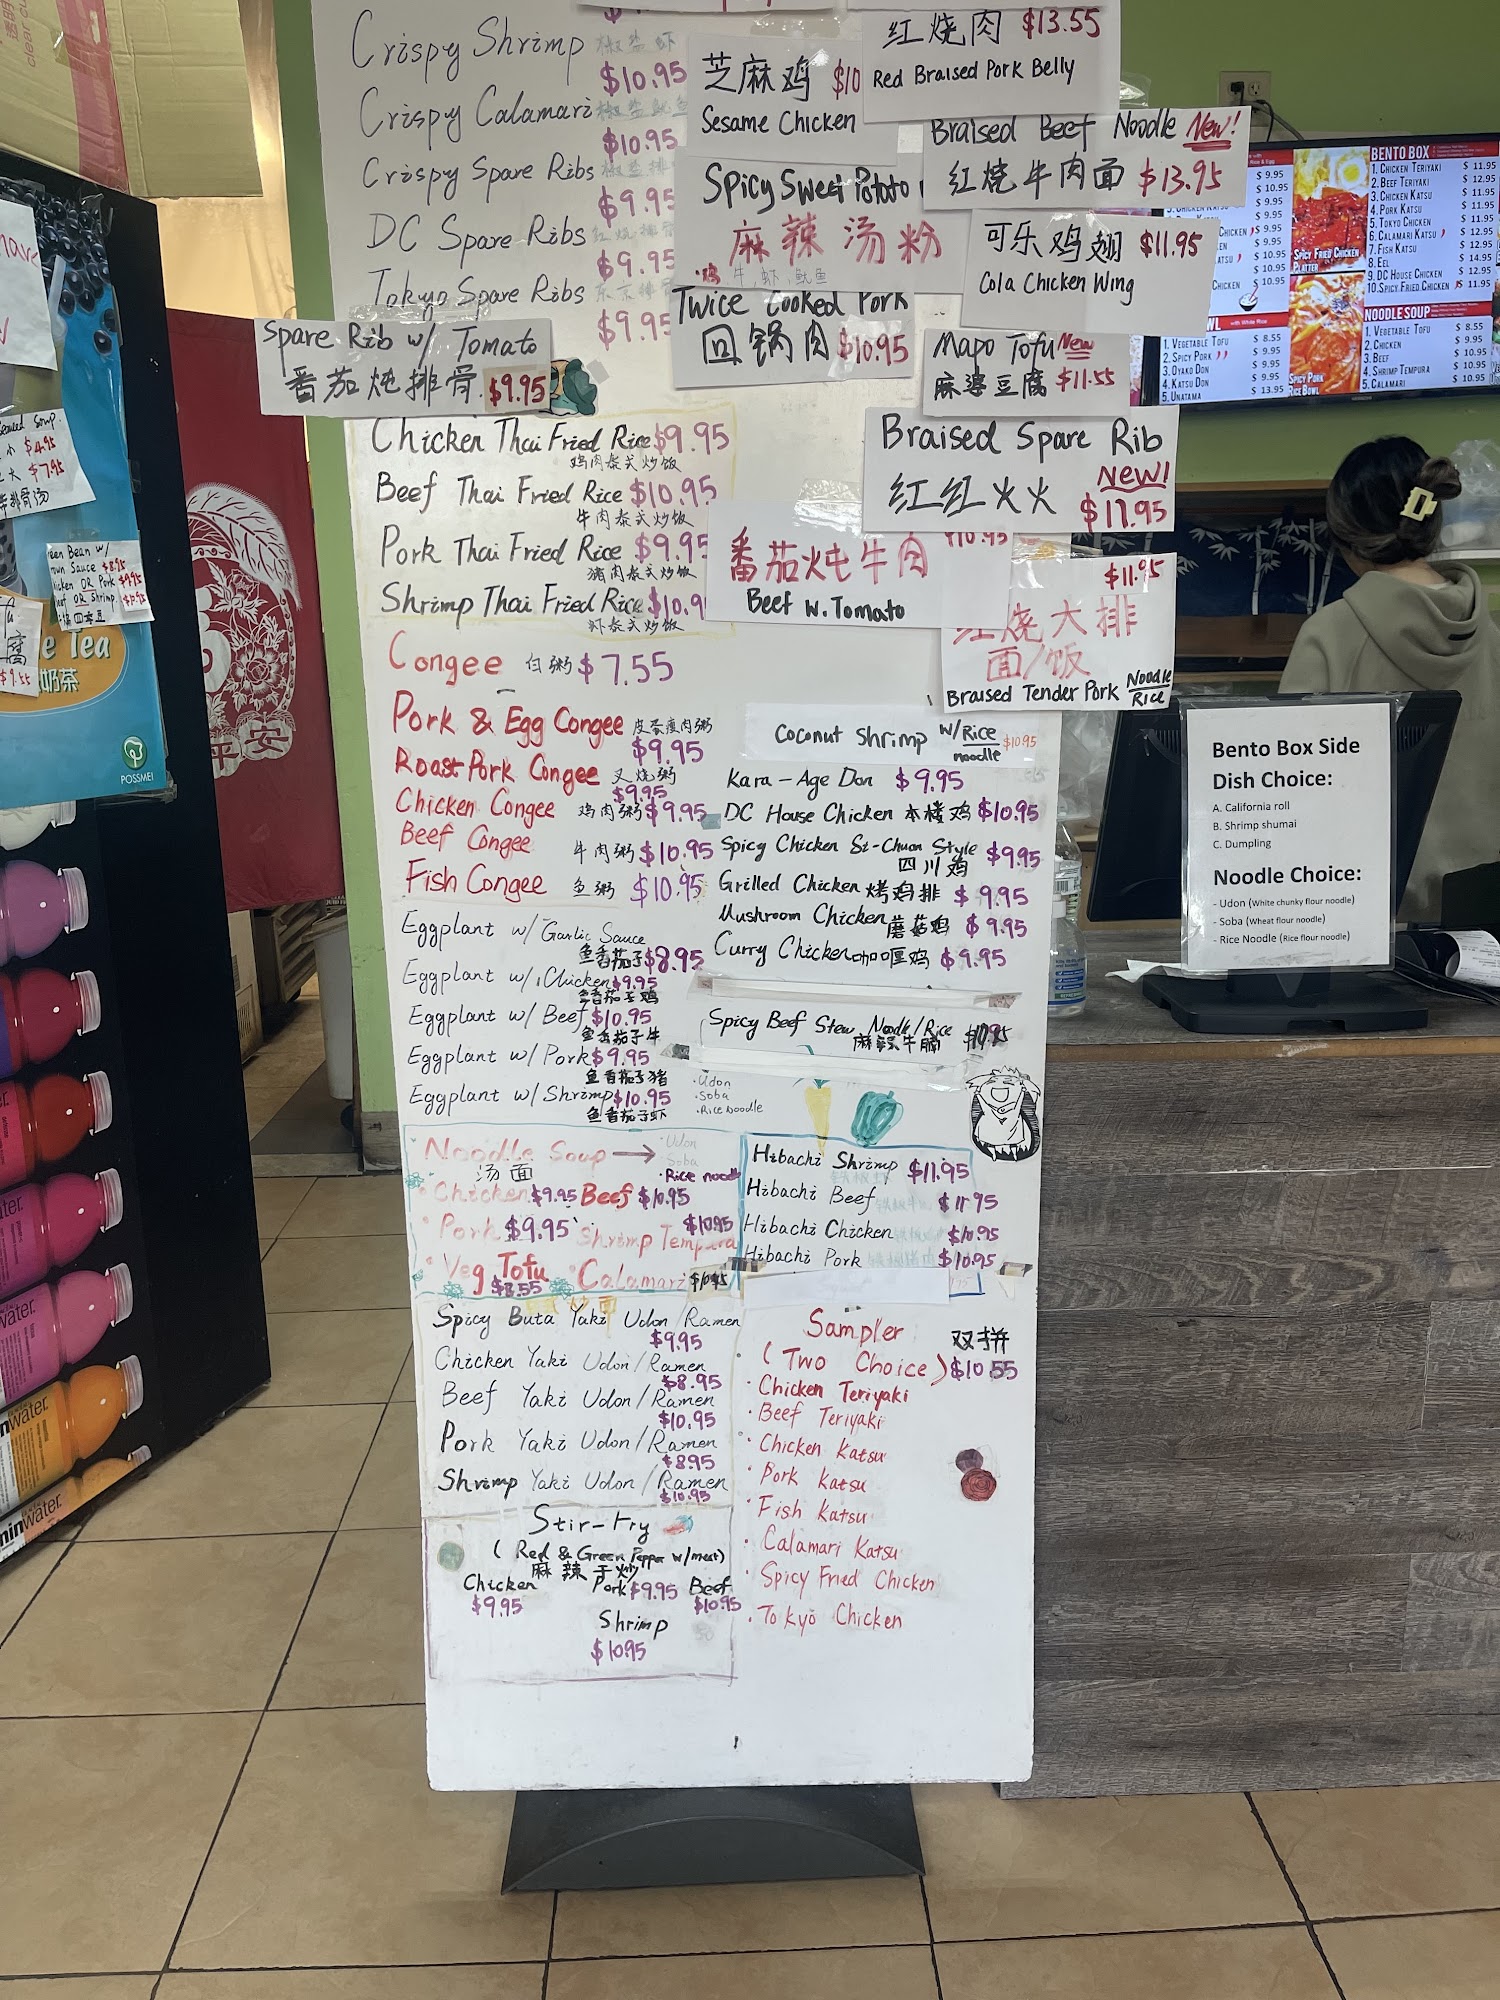 Crispy Shrimp 椒盐虾
$10.95
Crispy Calamari 椒盐鱿鱼
$10.95
Crispy Spare Ribs 椒盐排
$9.95
DC Spare Ribs 红烧排骨
$9.95
Tokyo Spare Ribs 东京排骨
$9.95
Spare Rib w/ Tomato
番茄炖排骨 $9.95
芝麻鸡 $10
Sesame Chicken
红烧肉 $13.55
Red Braised Pork Belly
Braised Beef Noodle New!
红烧牛肉面 $13.95
Spicy Sweet Potato
麻辣汤粉
·鸡 牛 虾 鱿鱼
可乐鸡翅 $11.95
Cola Chicken Wing
Twice Cooked Pork
回锅肉 $10.95
Mapo Tofu New
麻婆豆腐 $11.55
Braised Spare Rib
NEW!
红红火火 $17.95
$10.95
番茄炖牛肉
Beef w. Tomato
$11.95
红烧大排
面/饭
Braised Tender Pork Noodle/Rice
Chicken Thai Fried Rice $9.95
鸡肉泰式炒饭
Beef Thai Fried Rice $10.95
牛肉泰式炒饭
Pork Thai Fried Rice $9.95
猪肉泰式炒饭
Shrimp Thai Fried Rice $10.9
虾泰式炒饭
Congee 白粥 $7.55
Pork & Egg Congee 皮蛋瘦肉粥
$9.95
Roast Pork Congee 叉烧粥
$9.95
Chicken Congee 鸡肉粥 $9.95
Beef Congee 牛肉粥 $10.95
Fish Congee 鱼粥 $10.95
Eggplant w/ Garlic Sauce
鱼香茄子 $8.95
Eggplant w/ Chicken $9.95
鱼香茄子鸡
Eggplant w/ Beef $10.95
鱼香茄子牛
Eggplant w/ Pork $9.95
鱼香茄子猪
Eggplant w/ Shrimp $10.95
鱼香茄子虾
Coconut Shrimp w/Rice $10.95
noodle
Kara-Age Don $9.95
DC House Chicken 本楼鸡 $10.95
Spicy Chicken Si-Chuan Style
四川鸡 $9.95
Grilled Chicken 烤鸡排 $9.95
Mushroom Chicken 蘑菇鸡 $9.95
Curry Chicken 咖喱鸡 $9.95
Spicy Beef Stew Noodle/Rice
麻辣牛腩
·Udon
·Soba
·Rice Noodle
Noodle Soup → ·Udon
·Soba
汤面 ·Rice noodle
·Chicken $9.95 Beef $10.95
·Pork $9.95 ·Shrimp Tempura $10.95
·Veg Tofu $8.55 ·Calamari $10.95
Hibachi Shrimp $11.95
Hibachi Beef $11.95
Hibachi Chicken $10.95
Hibachi Pork $10.95
Spicy Buta Yaki Udon/Ramen
$9.95
Chicken Yaki Udon/Ramen
$8.95
Beef Yaki Udon/Ramen
$10.95
Pork Yaki Udon/Ramen
$8.95
Shrimp Yaki Udon/Ramen
$10.95
Stir-Fry
(Red & Green Pepper w/meat)
麻辣干炒
Chicken Pork $9.95 Beef
$9.95 $10.95
Shrimp
$10.95
Sampler 双拼
(Two Choice) $10.55
·Chicken Teriyaki
·Beef Teriyaki
·Chicken Katsu
·Pork Katsu
·Fish Katsu
·Calamari Katsu
·Spicy Fried Chicken
·Tokyo Chicken
BENTO BOX
1. CHICKEN TERIYAKI $ 11.95
2. BEEF TERIYAKI $ 12.95
3. CHICKEN KATSU $ 11.95
4. PORK KATSU $ 11.95
5. TOKYO CHICKEN $ 11.95
6. CALAMARI KATSU $ 12.95
7. FISH KATSU $ 12.95
8. EEL $ 14.95
9. DC HOUSE CHICKEN $ 12.95
10. SPICY FRIED CHICKEN $ 11.95
NOODLE SOUP
1. VEGETABLE TOFU $ 8.55
2. CHICKEN $ 9.95
3. BEEF $ 10.95
4. SHRIMP TEMPURA $ 10.95
5. CALAMARI $ 10.95
SPICY FRIED CHICKEN
PLATTER
SPICY PORK
RICE BOWL
with White Rice
1. VEGETABLE TOFU $ 8.55
2. SPICY PORK $ 9.95
3. OYAKO DON $ 9.95
4. KATSU DON $ 9.95
5. UNATAMA $ 13.95
Bento Box Side
Dish Choice:
A. California roll
B. Shrimp shumai
C. Dumpling
Noodle Choice:
- Udon (White chunky flour noodle)
- Soba (Wheat flour noodle)
- Rice Noodle (Rice flour noodle)
$4.95
$7.95
排骨汤
een Bean w/
own Sauce $8.95
icken OR Pork $9.95
eef OR Shrimp
四季豆
$9.55
e Tea
奶茶
POSSMEI
平安
clear cu
water.
water.
water.
ninwater.